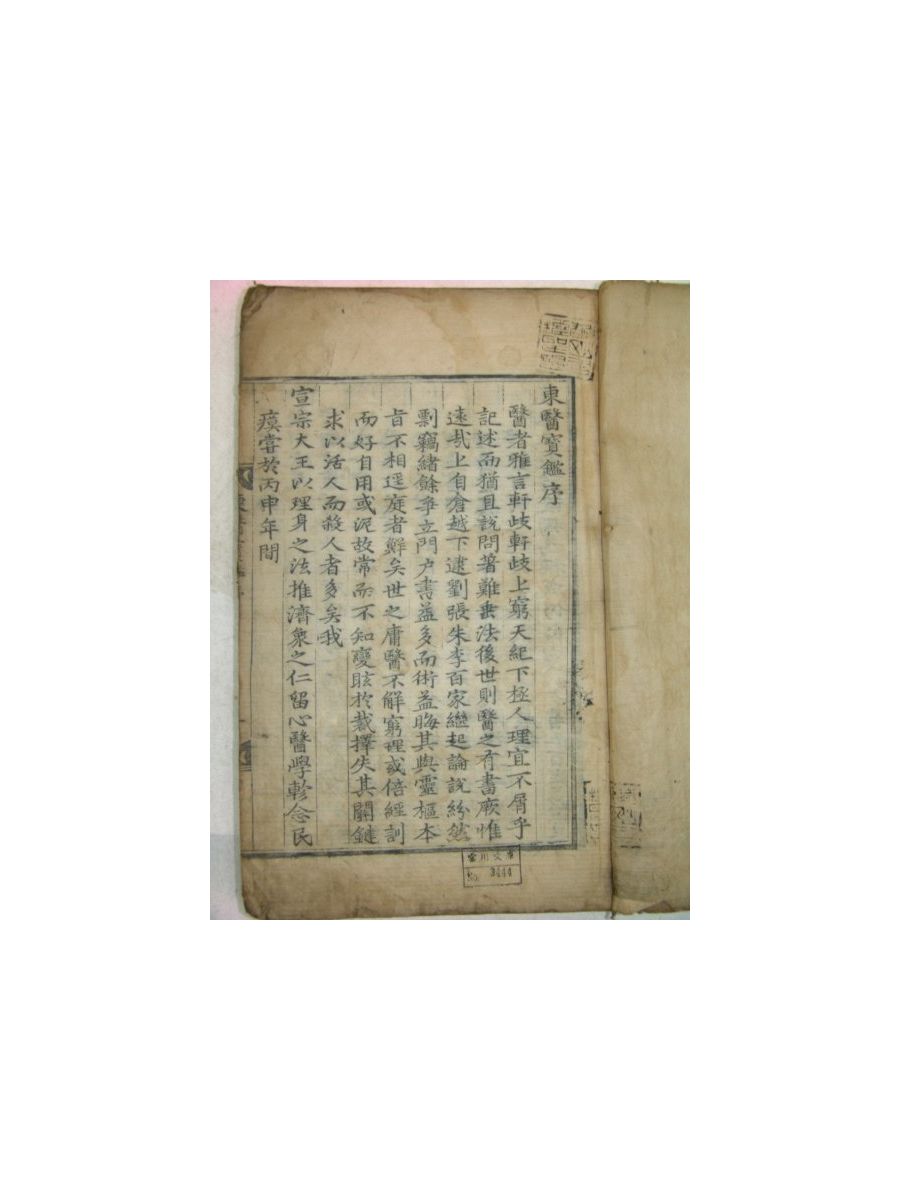 東醫寶鑑序
醫者雅言軒岐軒岐上窮天紀下極人理宜不屑乎
記述而猶且說問著難垂法後世則醫之有書厥惟
遠哉上自倉越下逮劉張朱李百家繼起論說紛然
剽竊緖餘爭立門戶書益多而術益晦其與靈樞本
旨不相逕庭者鮮矣世之庸醫不解窮理或倍經訓
而好自用或泥故常而不知變眩於裁擇失其關鍵
求以活人而殺人者多矣我
宣宗大王以理身之法推濟衆之仁留心醫學軫念民
瘼嘗於丙申年間
No. 3444